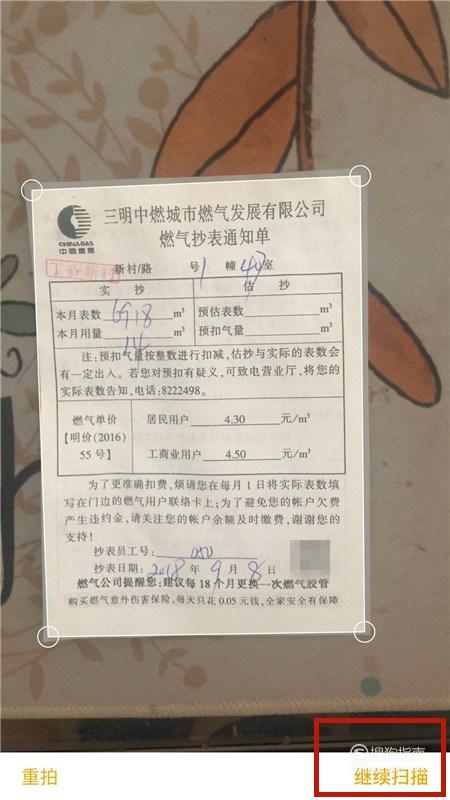 三明中燃城市燃气发展有限公司
CHINA GAS
中国燃气
燃气抄表通知单
新村/路 号1幢 室
实 抄 估 抄
本月表数 6918 m³ 预估表数 m³
本月用量 14 m³ 预扣气量 m³
注:预扣气量按整数进行扣减,估抄与实际的表数会
有一定出入。若您对预扣有疑义,可致电营业厅,将您的
实际表数告知,电话:8222498。
燃气单价 居民用户 4.30 元/m³
【明价(2016)
55号】 工商业用户 4.50 元/m³
为了更准确扣费,烦请您在每月1日将实际表数填
写在门边的燃气用户联络卡上;为了避免您的帐户欠费
产生违约金,请关注您的帐户余额及时缴费,谢谢您的
支持!
抄表员工号: 050
抄表日期:2018年9月8日
燃气公司提醒您:建议每18个月更换一次燃气胶管
购买燃气意外伤害保险,每天只花0.05元钱,全家安全有保障
搜狗指南
重拍 继续扫描